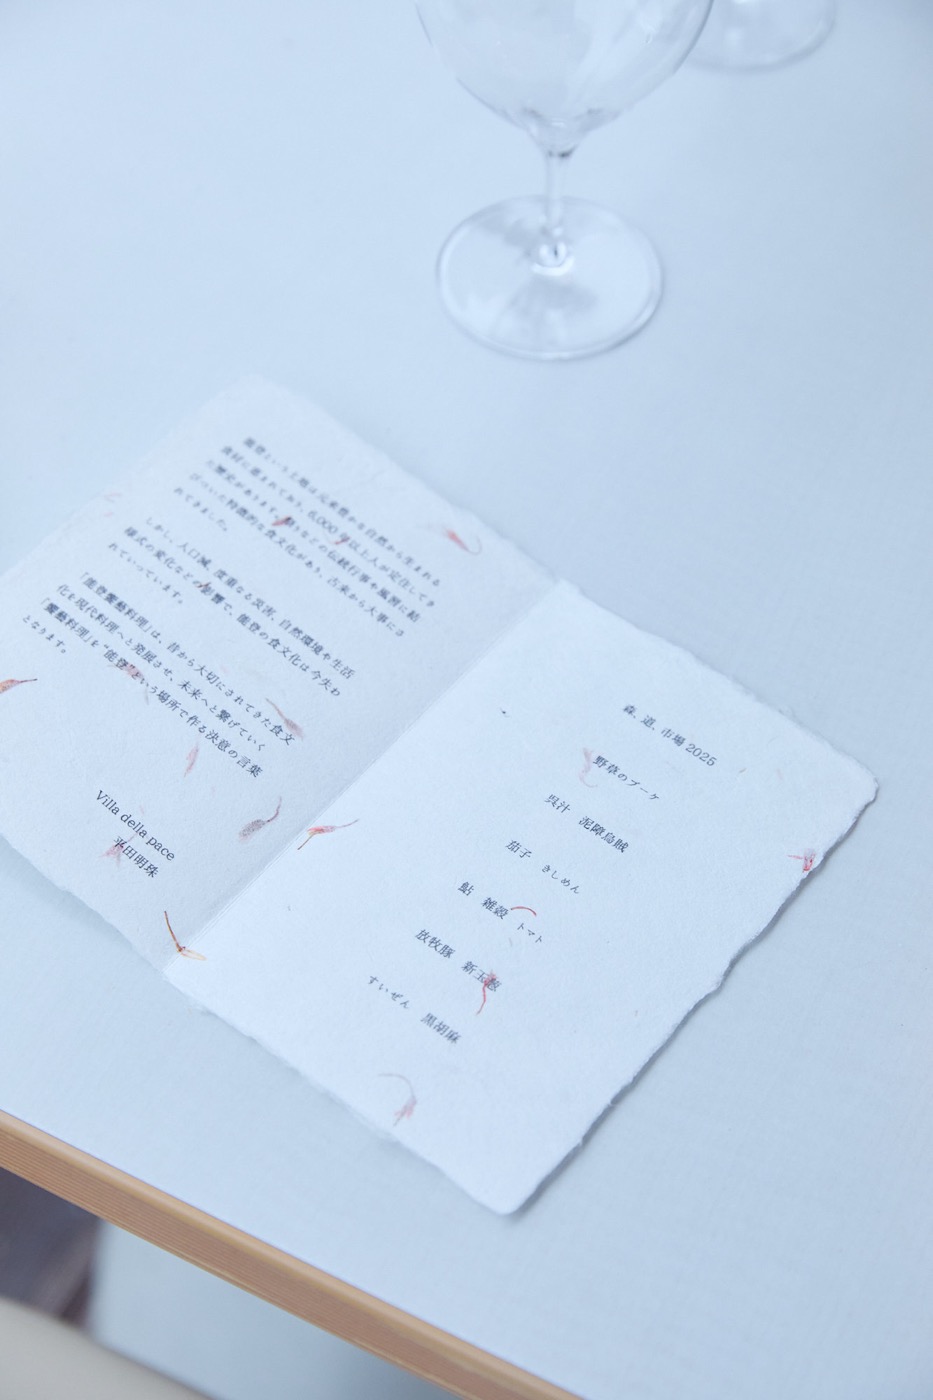 能登という土地は元来豊かな自然から生まれる
食材に恵まれており、6,000年以上人が定住してき
た歴史があります。祭りなどの伝統行事や風習に結
びついた特徴的な食文化があり、古来から大事にさ
れてきました。
しかし、人口減、度重なる災害、自然環境や生活
様式の変化などの影響で、能登の食文化は今失わ
れていっています。
「能登饗藝料理」は、昔から大切にされてきた食文
化を現代料理へと発展させ、未来へと繋げていく
「饗藝料理」を“能登”という場所で作る決意の言葉
となります。
Villa della pace
平田明珠
森、道、市場 2025
野草のブーケ
呉汁 泥障烏賊
茄子 きしめん
鮎 雑穀 トマト
放牧豚 新玉葱
すいぜん 黒胡麻